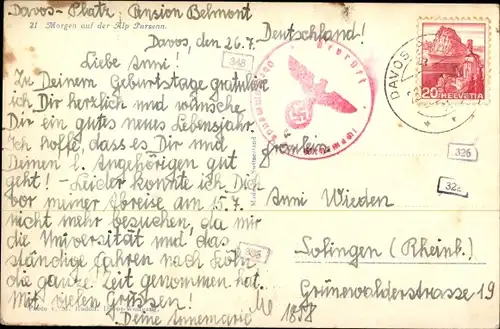 Davos-Platz, Pension Belmont
21 Morgen auf der Alp Parsenn.
Davos, den 26.7.
Liebe Anni!
Zu Deinem Geburtstage gratuliere
ich Dir herzlich und wünsche
Dir ein gutes neues Lebensjahr.
Ich hoffe, dass es Dir und
Deinen l. Angehörigen gut
geht! - Leider konnte ich Dich
vor meiner Abreise am 15.7.
nicht mehr besuchen, da mir
die Universität und das
ständige Fahren nach Köln
die ganze Zeit genommen hat.
Mit vielen Grüssen!
Deine Annemarie
Deutschland!
348
Geprüft
Oberkommando der Wehrmacht
DAVOS
20 HELVETIA
Fräulein
326
Anni Wieden
Solingen (Rheinl.)
Grünewalderstrasse 19
1858